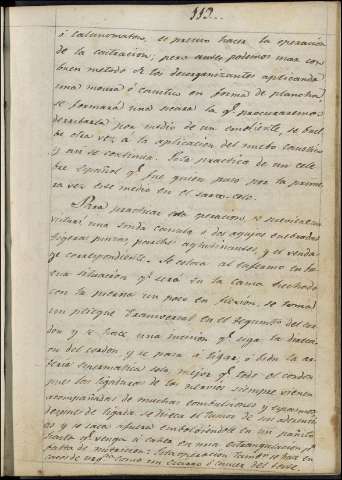 113..
ó calumoratoso, es preciso hacer la operación
de la castracion; pero antes podemos usar con
buen metodo de los desorganizantes aplicando
una moxa ó caustico en forma de plancha,
se formará una escara la q.e procuraremos
derribarla por medio de un emoliente, se buel
be otra vez a la aplicacion del nuebo caustico
y asi se continua. Esta practica de un cele
bre Español q.e fue quien puso por la prime
ra vez este medio en el sarco-cele.
Para practicar esta operacion, se necesita un
visturi, una sonda canula, dos agujas enebradas
tigeras pinzas parches aglutinantes, y el venda
ge correspondiente. Se coloca al enfermo en bu
ena situacion q.e será en la cama hechado
con la pierna un poco en flexion, se toma
un pliegue transversal en el tegumto del cor
don y se hace una incision q.e siga la direcci
on del cordon y se pasa á ligar ó bien la ar
teria espermatica sola mejor q.e todo el cordon
pues las ligaduras de los nervios siempre vienen
acompañadas de muchas combulsiones y espasmos,
despues de ligada se diseca el tumor de sus adheren
cias y se saca afuera embolbiendole en un pañito
hasta q.e venga á caher en una estrangulacion p.r
falta de nutricion: Esta operacion tamb.n se hace en
casos de como un Escirro ó cancer del teste.